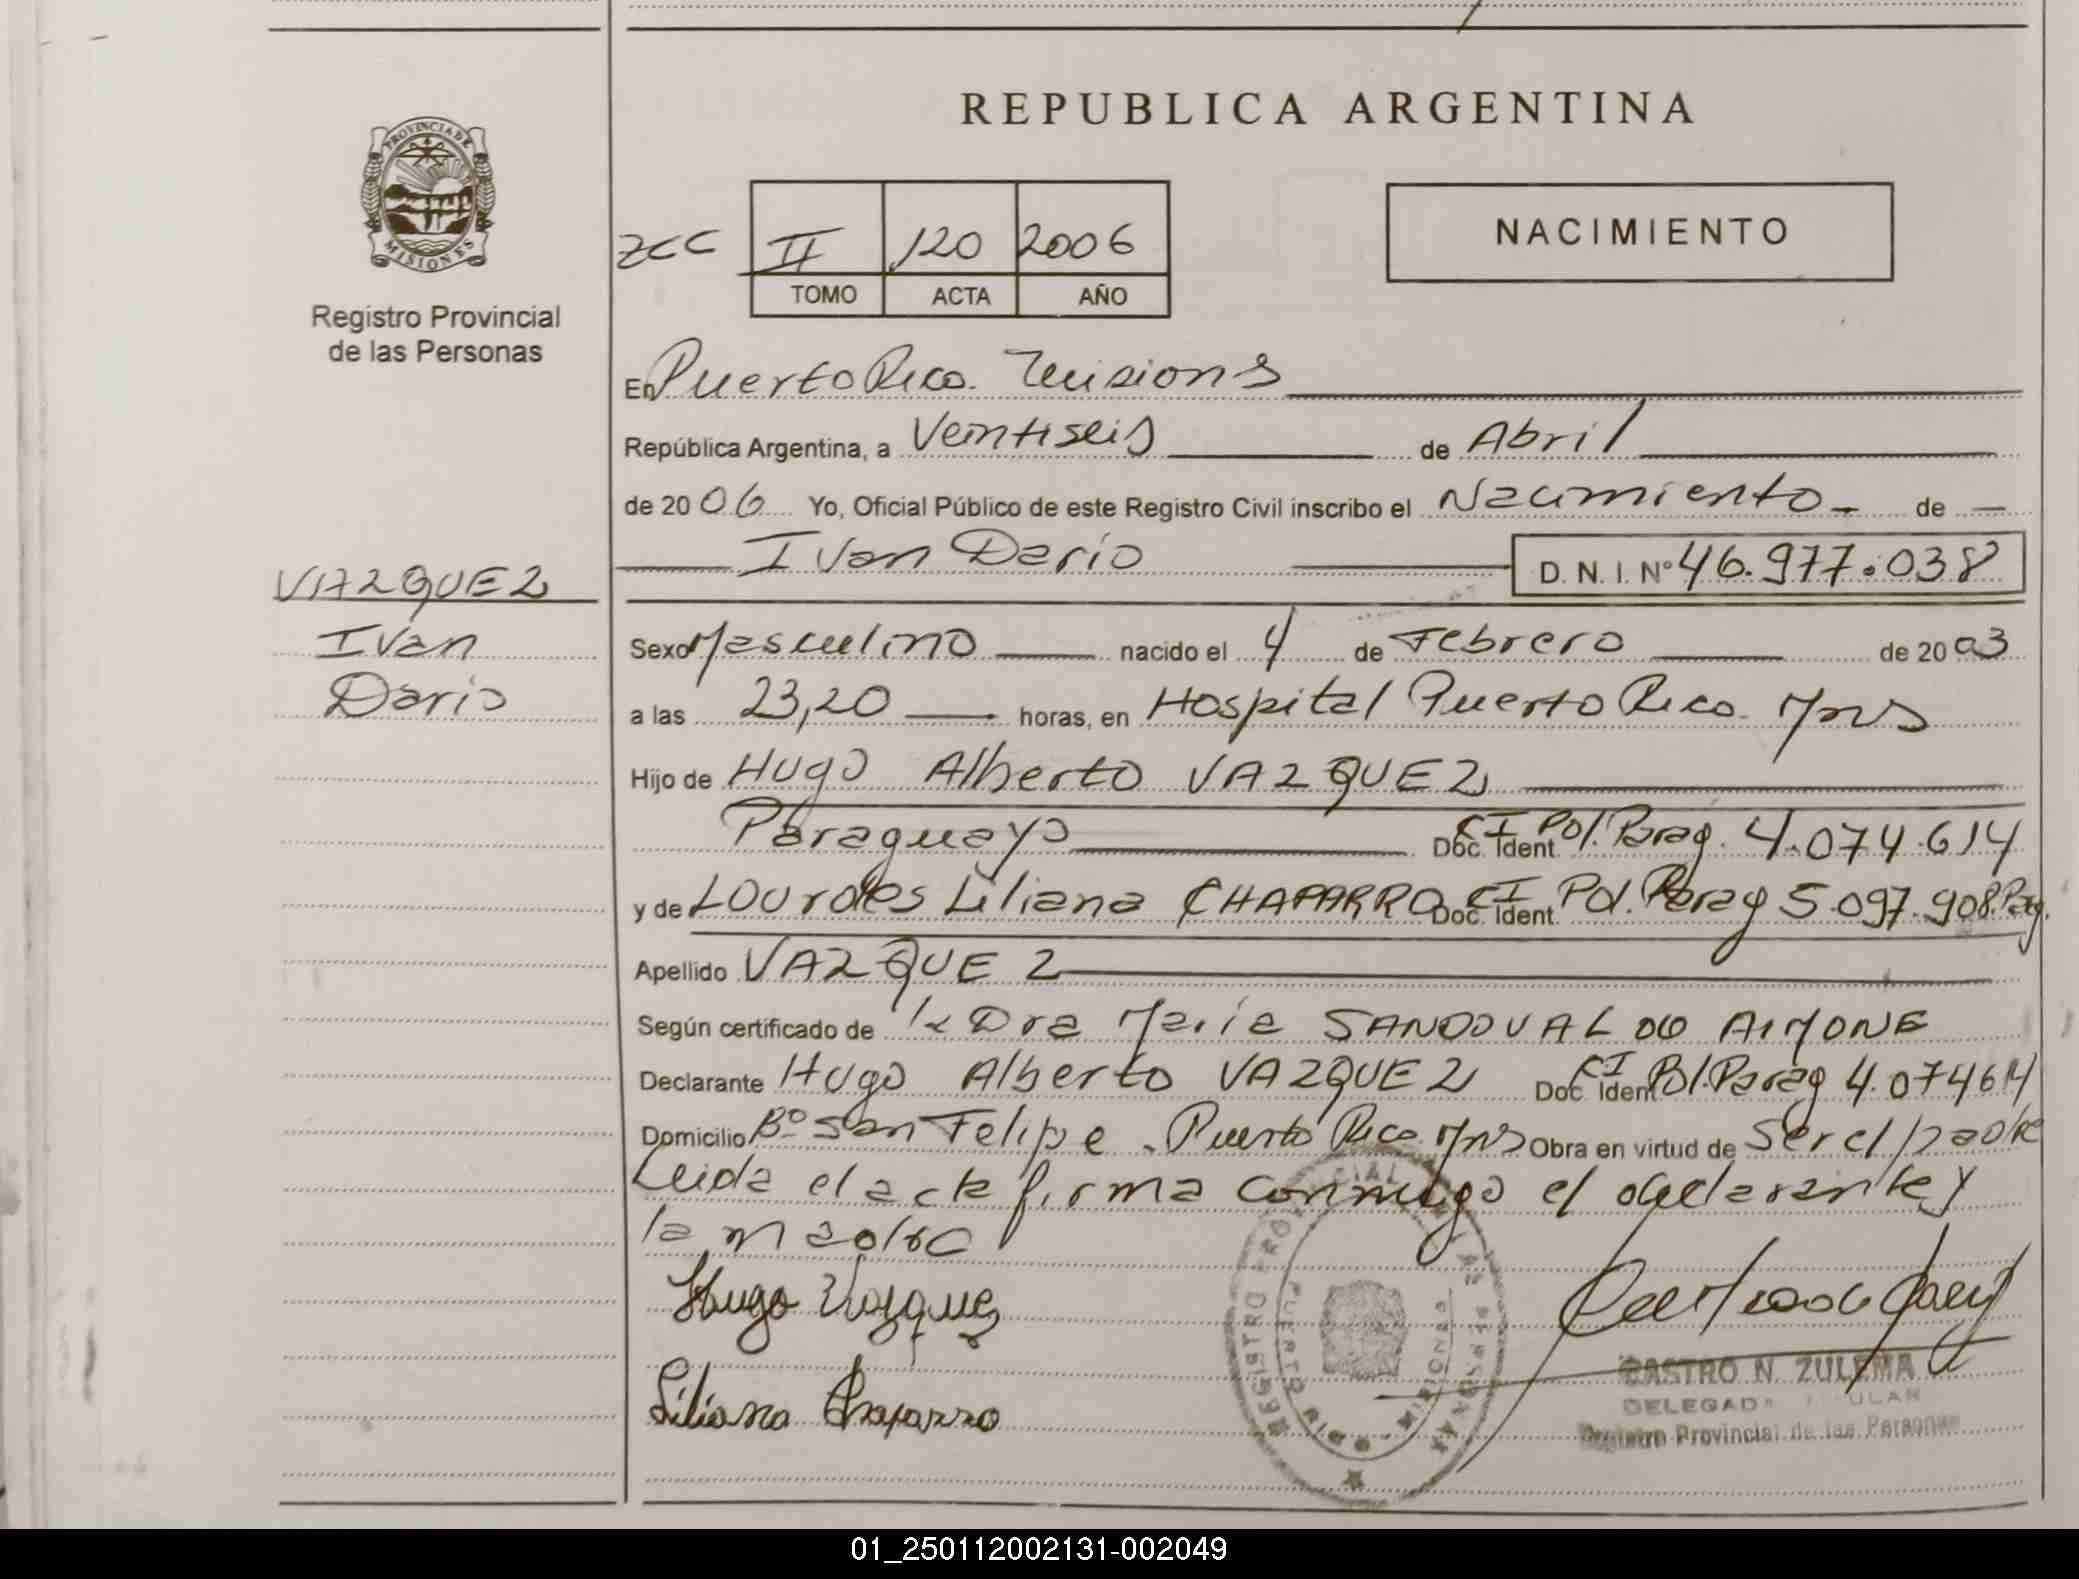 REPUBLICA ARGENTINA
PROVINCIA DE
MISIONES
Registro Provincial
de las Personas
zcc II 120 2006
TOMO ACTA AÑO
NACIMIENTO
En Puerto Rico. Misiones
República Argentina, a Veintiseis de Abril
de 2006 Yo, Oficial Público de este Registro Civil inscribo el Nacimiento - de
Ivan Dario D. N. I. Nº 46.977.038
VAZQUEZ
Ivan
Dario
Sexo Masculino nacido el 4 de Febrero de 2003
a las 23,20 horas, en Hospital Puerto Rico. Mns
Hijo de Hugo Alberto VAZQUEZ
Paraguayo Doc. Ident. CI Pol. Parag. 4.074.614
y de Lourdes Liliana CHAPARRO Doc. Ident. CI Pol. Parag 5.097.908. Pag.
Apellido VAZQUEZ
Según certificado de la Dra Maria SANDOVAL de AIMONE
Declarante Hugo Alberto VAZQUEZ Doc. Ident CI Pol. Parag 4.074614
Domicilio Bº San Felipe. Puerto Rico. Mns Obra en virtud de Ser el padre
Leida el acta firma conmigo el declarante y
la madre
Hugo Vazquez
Liliana Chaparro
REGISTRO PROVINCIAL DE LAS PERSONAS
PUERTO RICO - MISIONES
CASTRO N. ZULEMA
DELEGADA TITULAR
Registro Provincial de las Personas
01_250112002131-002049